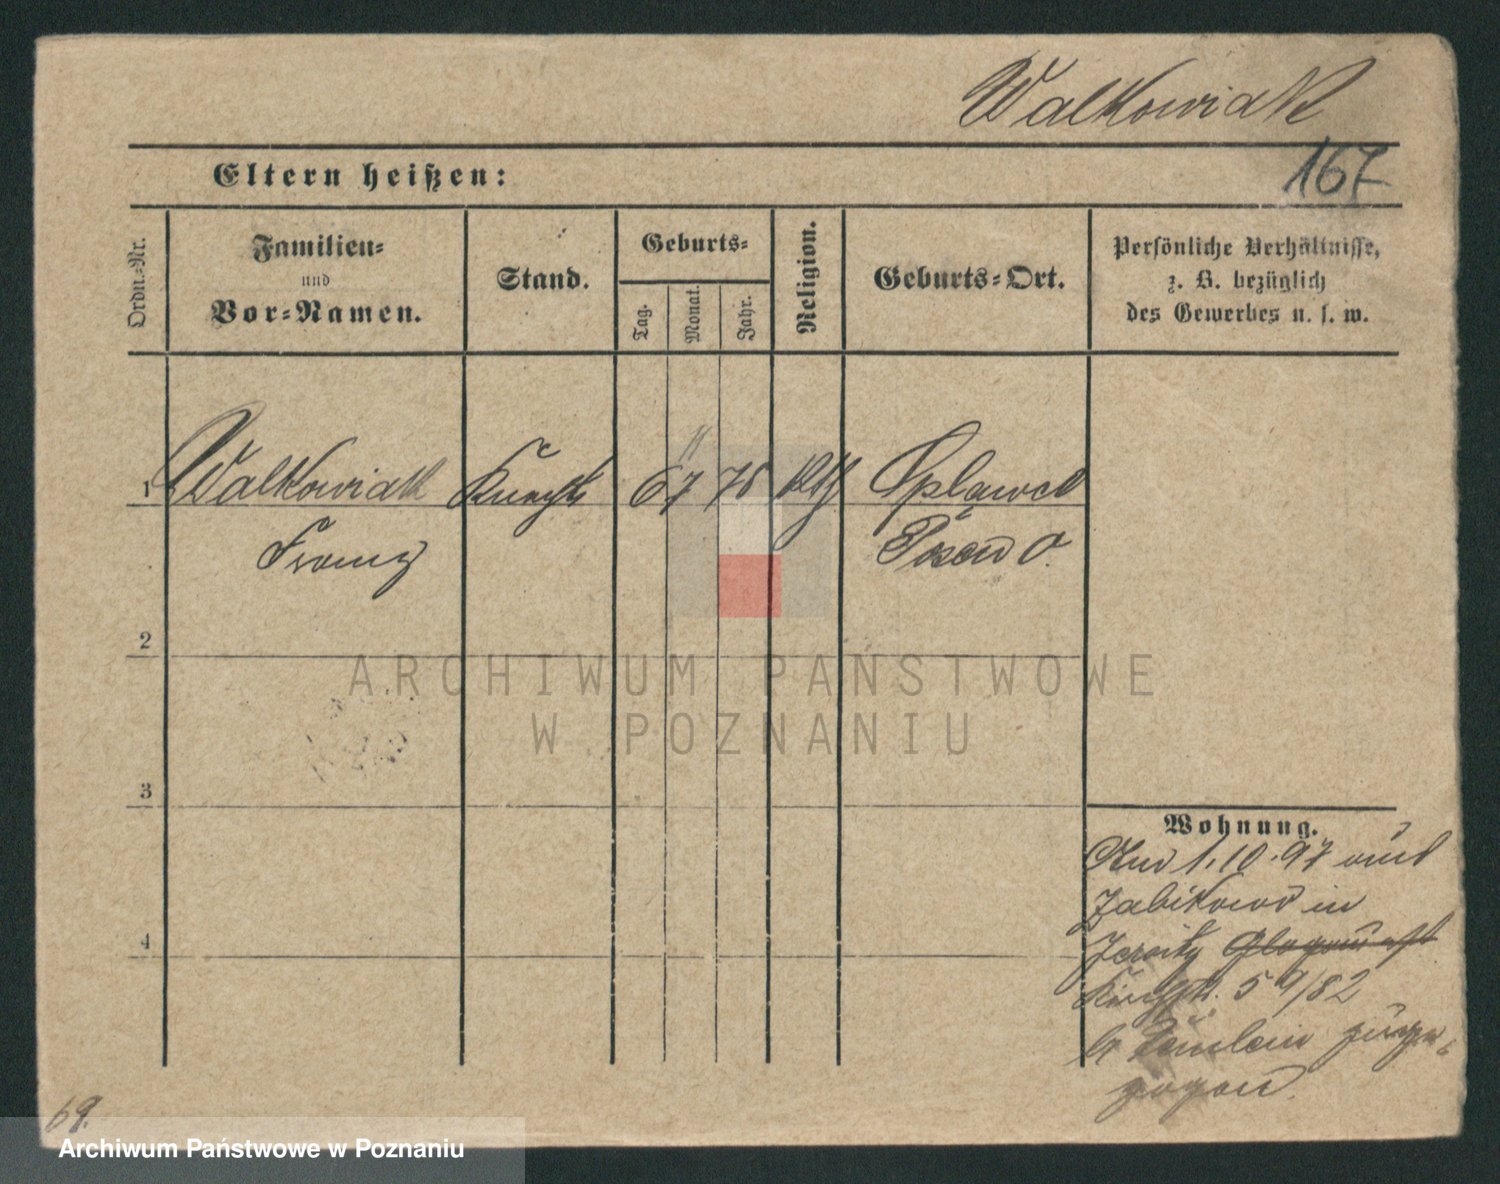 Walkowiak
167
Eltern heißen:
Ordn.-Nr.
Familien-
und
Vor-Namen.
Stand.
Geburts-
Tag.
Monat.
Jahr.
Religion.
Geburts-Ort.
Persönliche Verhältnisse,
z. B. bezüglich
des Gewerbes u. s. w.
1 Walkowiak Knecht 6 75 kth Spławed
Franz Posen O.
2
ARCHIWUM PAŃSTWOWE
W POZNANIU
3
Wohnung.
Am 1.10.97 aus
Zabikowo in
Jersitz
Kirchstr. 59/82
b zuge-
zogen.
4
69.
Archiwum Państwowe w Poznaniu